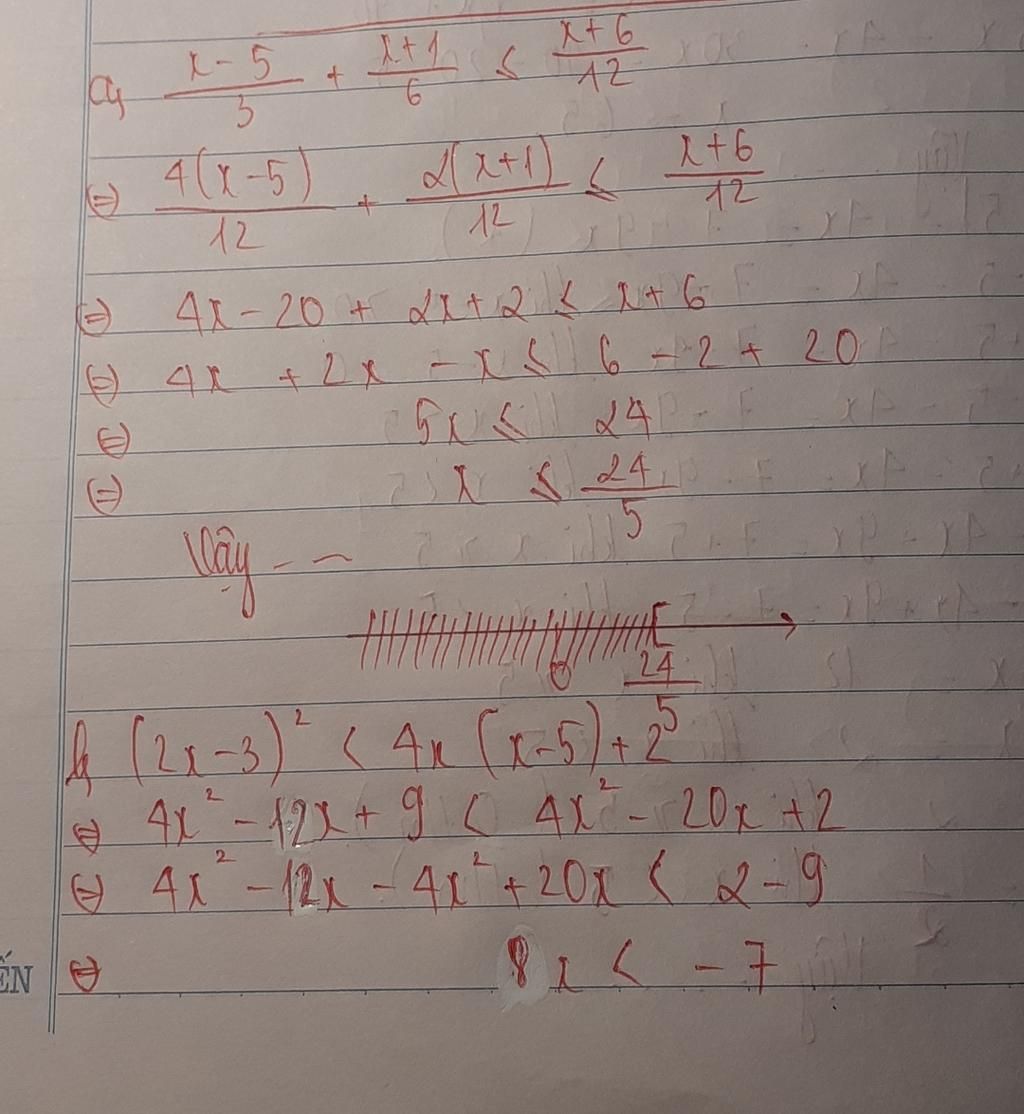 a, x-5/3 + x+1/6 ≤ x+6/12
⇔ 4(x-5)/12 + 2(x+1)/12 ≤ x+6/12
⇔ 4x-20 + 2x+2 ≤ x+6
⇔ 4x + 2x - x ≤ 6 - 2 + 20
⇔ 5x ≤ 24
⇔ x ≤ 24/5
Vậy - -
0 24/5
b, (2x-3)² < 4x (x-5)+2
⇔ 4x² - 12x + 9 < 4x² - 20x + 2
⇔ 4x² - 12x - 4x² + 20x < 2 - 9
⇔ 8x < - 7
ẾN